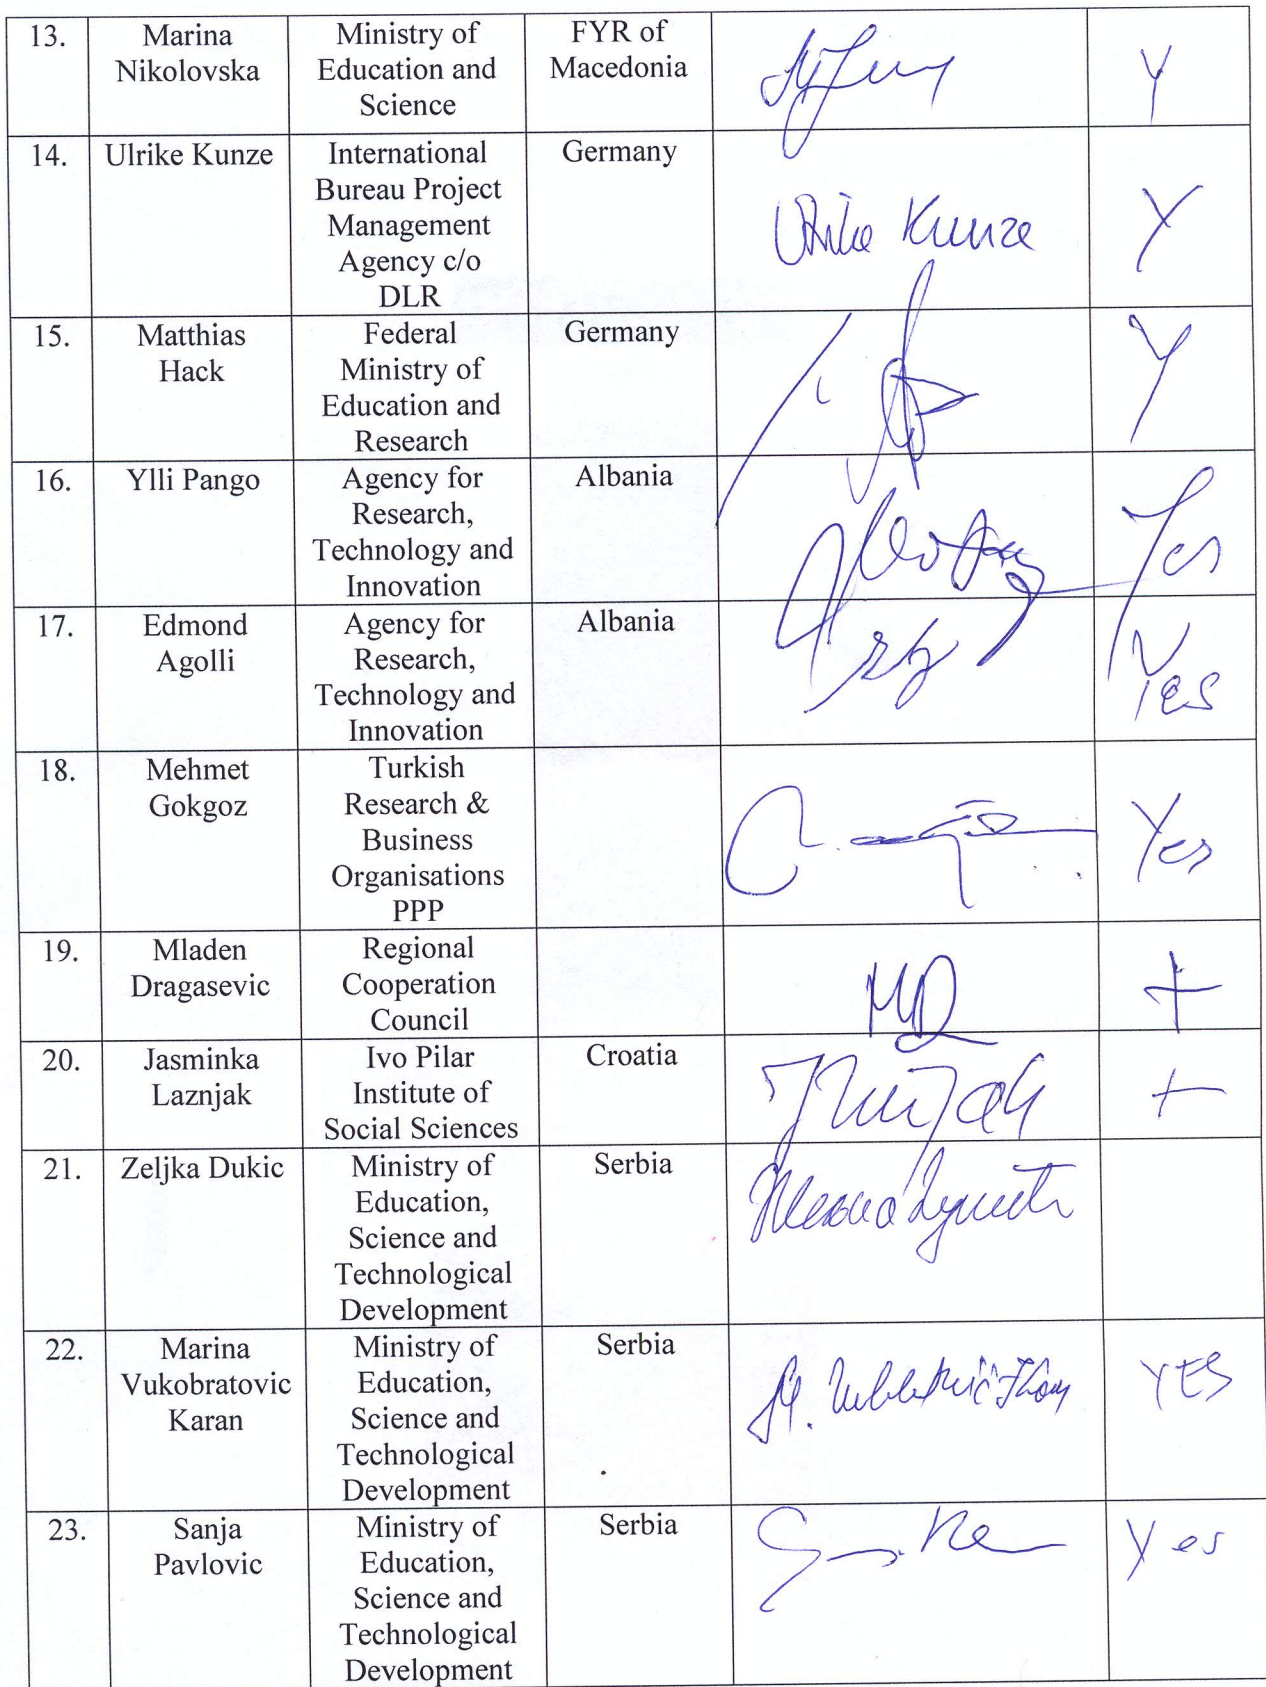 13.
Marina
Nikolovska
Ministry of
Education and
Science
FYR of
Macedonia
Y
14.
Ulrike Kunze
International
Bureau Project
Management
Agency c/o
DLR
Germany
Ulrike Kunze
Y
15.
Matthias
Hack
Federal
Ministry of
Education and
Research
Germany
Y
16.
Ylli Pango
Agency for
Research,
Technology and
Innovation
Albania
Yes
17.
Edmond
Agolli
Agency for
Research,
Technology and
Innovation
Albania
Yes
18.
Mehmet
Gokgoz
Turkish
Research &
Business
Organisations
PPP
Yes
19.
Mladen
Dragasevic
Regional
Cooperation
Council
MD
+
20.
Jasminka
Laznjak
Ivo Pilar
Institute of
Social Sciences
Croatia
+
21.
Zeljka Dukic
Ministry of
Education,
Science and
Technological
Development
Serbia
22.
Marina
Vukobratovic
Karan
Ministry of
Education,
Science and
Technological
Development
Serbia
YES
23.
Sanja
Pavlovic
Ministry of
Education,
Science and
Technological
Development
Serbia
Yes